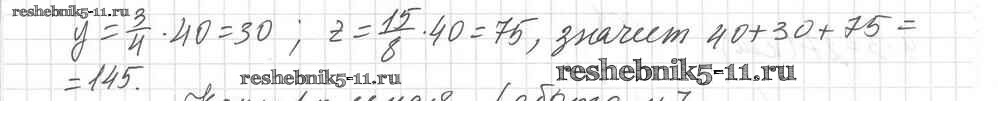 reshebnik5-11.ru
y = 3/4 · 40 = 30 ; z = 15/8 · 40 = 75, значит 40+30+75 =
= 145.
reshebnik5-11.ru
reshebnik5-11.ru